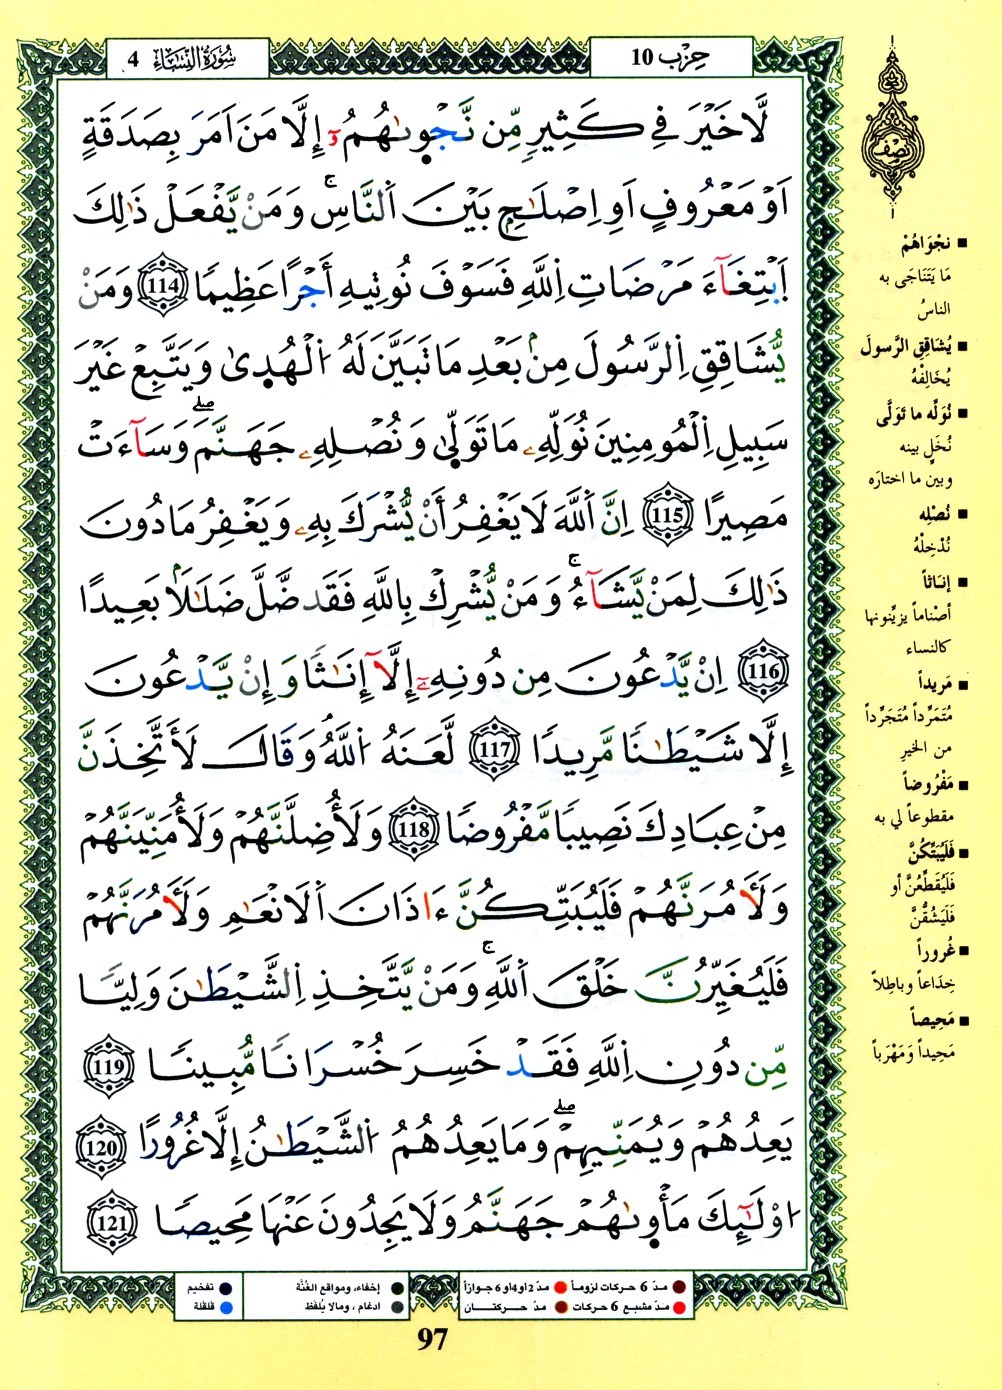 سُورَةُ النِّسَاءِ 4
حِزْب 10
لَّا خَيْرَ فِے كَثِيرٖ مِّن نَّجْوٜىٰهُمُۥٓ إِلَّا مَنَ اَمَرَ بِصَدَقَةٍ
اَوْ مَعْرُوفٍ اَوِ اِصْلَٰحِۢ بَيْنَ اَ۬لنَّاسِۚ وَمَنْ يَّفْعَلْ ذَٰلِكَ
اَ۪بْتِغَآءَ مَرْضَاتِ اِ۬للَّهِ فَسَوْفَ نُوتِيهِ أَجْراً عَظِيماً 114 وَمَنْ
يُّشَاقِقِ اِ۬لرَّسُولَ مِنۢ بَعْدِ مَا تَبَيَّنَ لَهُ اُ۬لْهُد۪ىٰ وَيَتَّبِعْ غَيْرَ
سَبِيلِ اِ۬لْمُومِنِينَ نُوَلِّهِۦ مَا تَوَلّ۪ىٰ وَنُصْلِهِۦ جَهَنَّمَۖ وَسَآءَتْ
مَصِيراً 115 اِنَّ اَ۬للَّهَ لَا يَغْفِرُ أَنْ يُّشْرَكَ بِهِۦ وَيَغْفِرُ مَا دُونَ
ذَٰلِكَ لِمَنْ يَّشَآءُۚ وَمَنْ يُّشْرِكْ بِاللَّهِ فَقَد ضَّلَّ ضَلَٰلاَۢ بَعِيداً
116 اِنْ يَّدْعُونَ مِن دُونِهِۦٓ إِلَّآ إِنَٰثاً وَإِنْ يَّدْعُونَ
إِلَّا شَيْطَٰناً مَّرِيداً 117 لَّعَنَهُ اُ۬للَّهُۘ وَقَالَ لَأَتَّخِذَنَّ
مِنْ عِبَادِكَ نَصِيباً مَّفْرُوضاً 118 وَلَأُضِلَّنَّهُمْ وَلَأُمَنِّيَنَّهُمْ
وَلَأٓمُرَنَّهُمْ فَلَيُبَتِّكُنَّ ءَاذَانَ اَ۬لَانْعَٰمِ وَلَأٓمُرَنَّهُمْ
فَلَيُغَيِّرُنَّ خَلْقَ اَ۬للَّهِۚ وَمَنْ يَّتَّخِذِ اِ۬لشَّيْطَٰنَ وَلِيّاً
مِّن دُونِ اِ۬للَّهِ فَقَدْ خَسِرَ خُسْرَاناً مُّبِيناً 119
يَعِدُهُمْ وَيُمَنِّيهِمْۖ وَمَا يَعِدُهُمُ اُ۬لشَّيْطَٰنُ إِلَّا غُرُوراً 120
ا۟وْلَٰٓئِكَ مَأْوٜىٰهُمْ جَهَنَّمُ وَلَا يَجِدُونَ عَنْهَا مَحِيصاً 121
نصف
■ نجْوَاهُمْ
مَا يَتَنَاجَى به
الناسُ
■ يُشَاقِقِ الرَّسولَ
يُخَالِفْهُ
■ نُوَلِّه ما تَوَلَّى
نُخَلِّ بينه
وبين ما اختارَه
■ نُصْلِه
نُدْخِلْهُ
■ إنـَـاثاً
أصْناماً يزيِّنونها
كالنساء
■ مَريداً
مُتَمَرِّداً مُتَجَرِّداً
من الخيرِ
■ مَفْرُوضاً
مقطوعاً لي به
■ فَلَيُبَتِّكُنَّ
فَلَيُقَطِّعُنَّ أو
فَلَيَشُقُّنَّ
■ غُروراً
خِدَاعاً وباطِلاً
■ مَحِيصاً
مَحِيداً وَمَهْرَباً
مدّ 6 حركات لزوماً ● مدّ 2 أو 4 أو 6 جوازاً
مدّ مشبع 6 حركات ● مدّ حركتان
إخفاء، ومواقع الغُنَّة ● تفخيم
ادغام، ومالا يُلفظ ● قلقلة
97